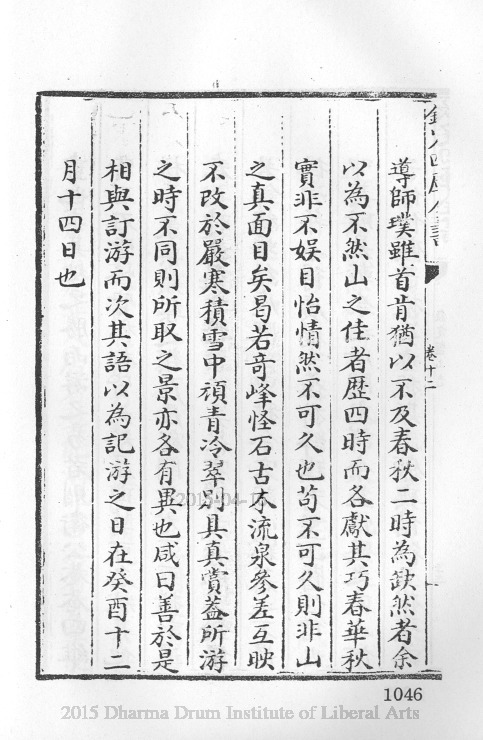 欽定四庫全書
卷十二
導師璞雖首肯猶以不及春秋二時為缺然者余
以為不然山之佳者歷四時而各獻其巧春華秋
實非不娛目怡情然不可久也苟不可久則非山
之真面目矣曷若奇峰怪石古木流泉參差互映
不改於嚴寒積雪中頑青冷翠別具真賞蓋所游
之時不同則所取之景亦各有異也咸曰善於是
相與訂游而次其語以為記游之日在癸酉十二
月十四日也
1046
2015 Dharma Drum Institute of Liberal Arts